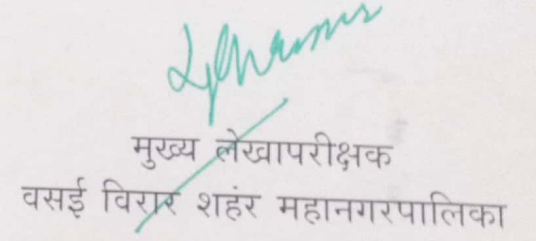 मुख्य लेखापरीक्षक
वसई विरार शहंर महानगरपालिका